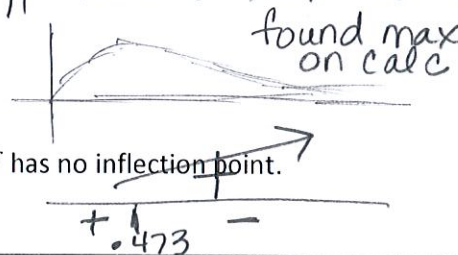 found max
on calc
has no inflection point.
+ .473 −